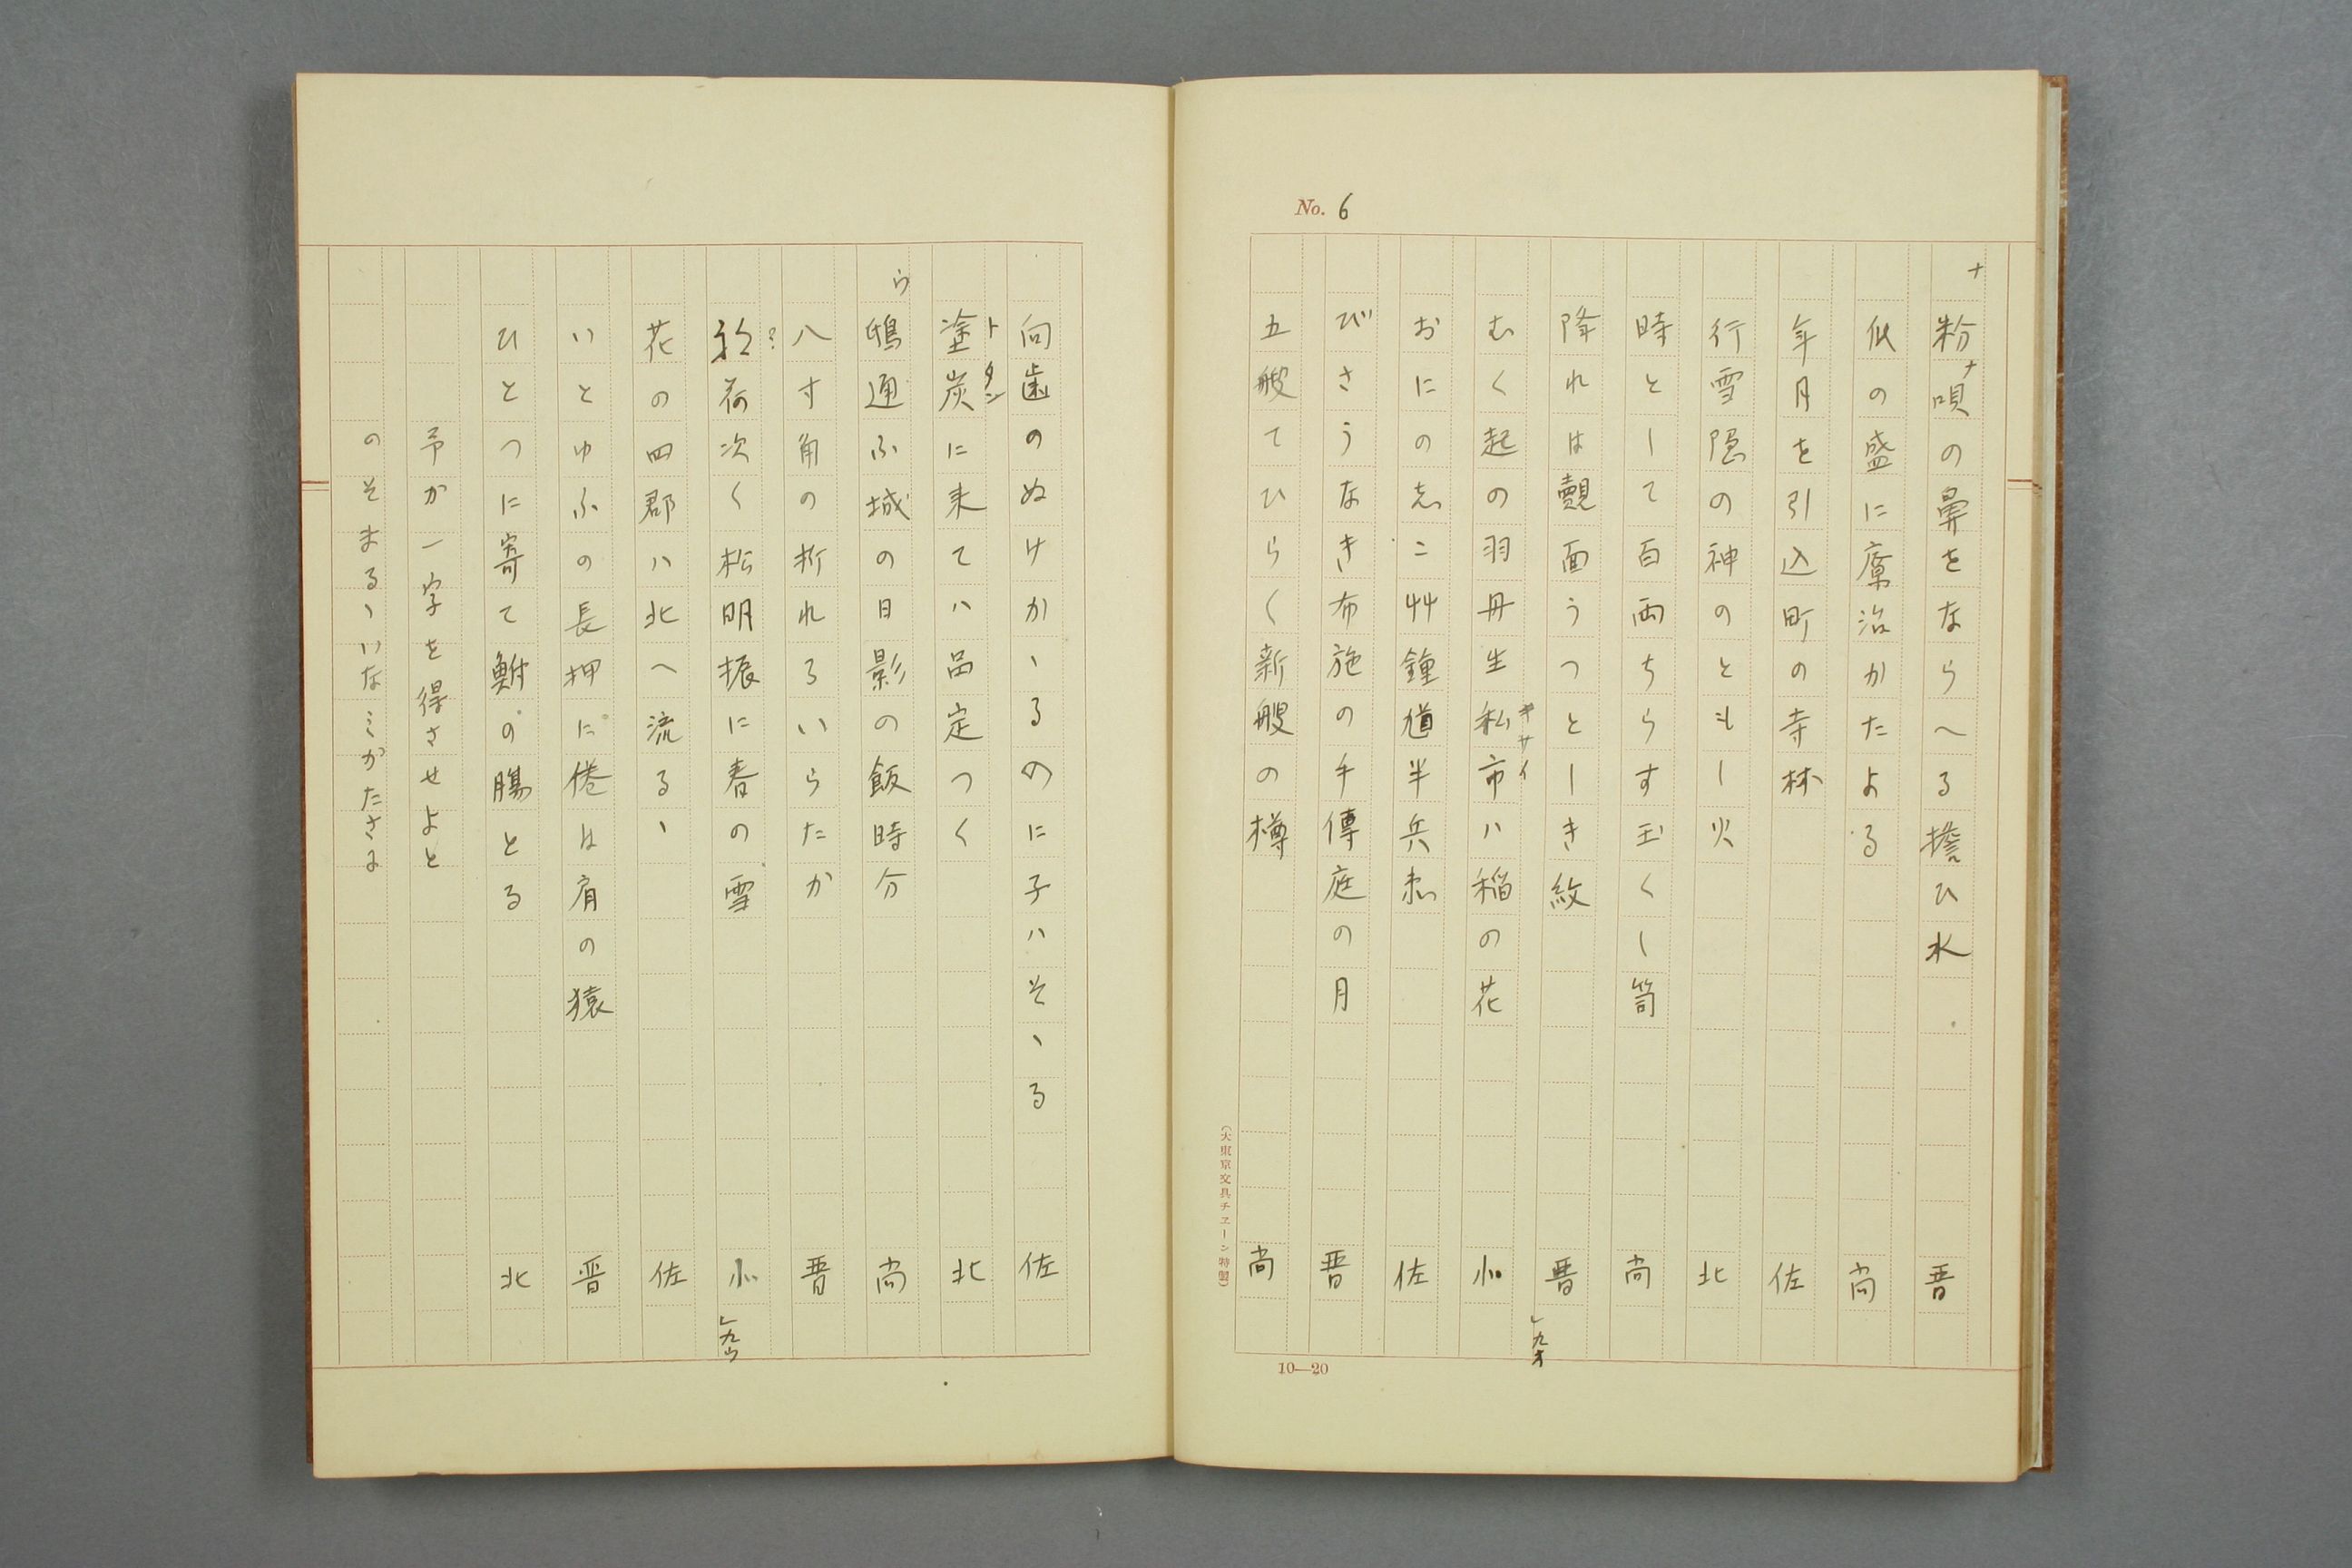 No. 6
ナ
粉唄の鼻をならへる擔ひ水 晋
ナ
似の盛に療治かたよる 尚
年月を引込町の寺林 佐
行雪隠の神のともし火 北
時として百両ちらす玉くし笥 尚
降れは覿面うつとしき紋 晋
レ九オ
むく起の羽丹生私市ハ稲の花
キサイ
おにのまこ艸鐘馗半兵衛 佐
びさうなき布施の手傳庭の月 晋
五艘てひらく新艘の樽 尚
(大東京文具チエーン特製)
10—20
向歯のぬけかゝるのに子ハそゝる 佐
塗炭に来てハ品定つく 北
トタン
ウ
鵄通ふ城の日影の飯時分 尚
八寸角の折れろいらたか 晋
?
荷次く松明振に春の雪
レ九ウ
花の四郡ハ北へ流るゝ 佐
いとゆふの長押に倦は肩の猿 晋
ひとつに寄て鮒の腸とる 北
予か一字を得させよと
のそまるゝいなミかたさに